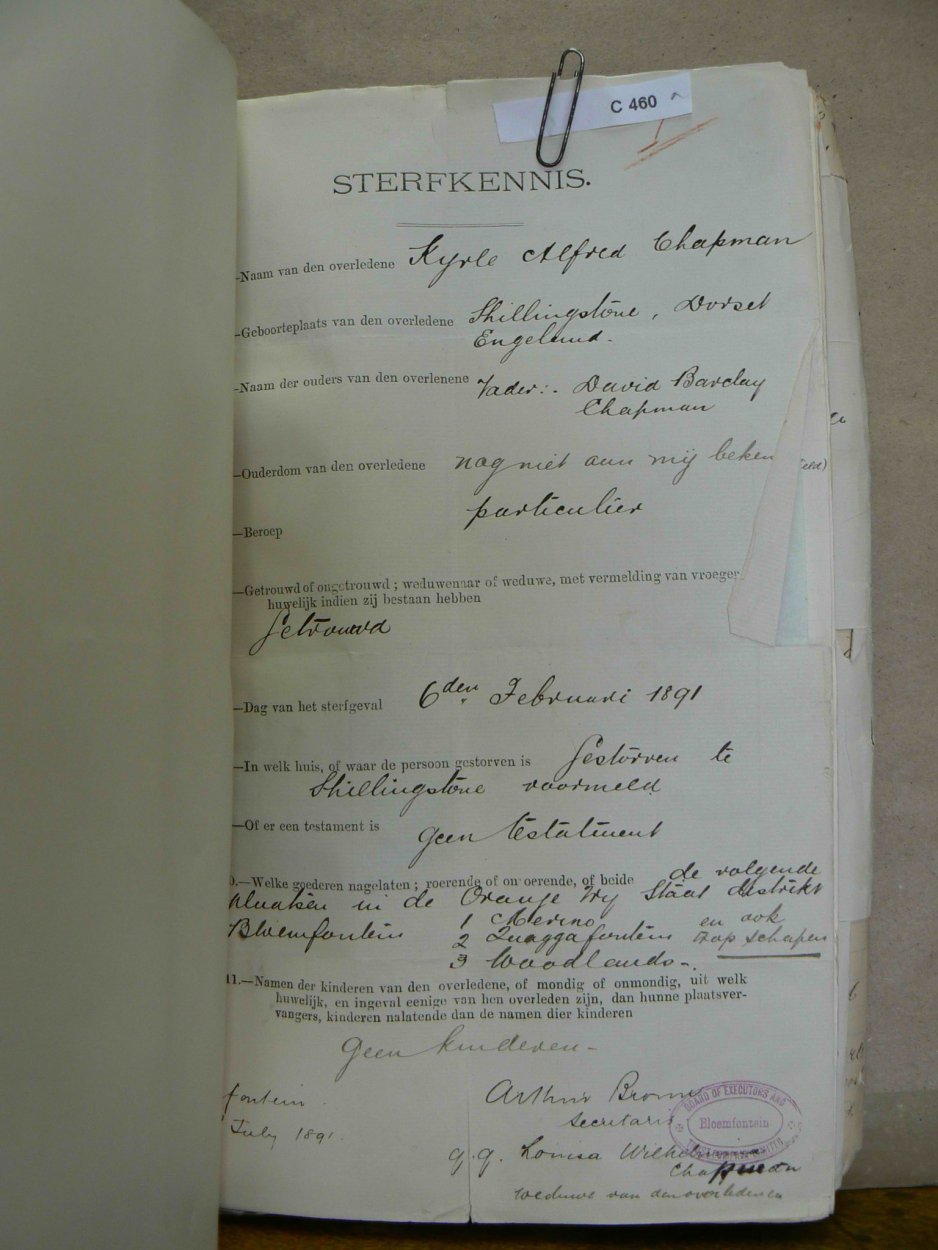 C 460
STERFKENNIS.
—Naam van den overledene Kyrle Alfred Chapman
—Geboorteplaats van den overledene Shillingstone, Dorset
Engeland.
—Naam der ouders van den overlenene Vader:. David Barclay
Chapman
—Ouderdom van den overledene nog niet aan mij beken
particulier
—Beroep
—Getrouwd of ongetrouwd; weduwenaar of weduwe, met vermelding van vroeger
huwelijk indien zij bestaan hebben
Getrouwd
—Dag van het sterfgeval 6den Februari 1891
—In welk huis, of waar de persoon gestorven is Gestorven te
Shillingstone voormeld
—Of er een testament is geen testatment
0.—Welke goederen nagelaten; roerende of onroerende, of beide de volgende
plaatsen in de Oranje Vrij Staat distrikt
Bloemfontein 1 Merino en ook
2 Quaggafontein schapen
3 Woodlands-.
11.—Namen der kinderen van den overledene, of mondig of onmondig, uit welk
huwelijk, en ingeval eenige van hen overleden zijn, dan hunne plaatsver-
vangers, kinderen nalatende dan de namen dier kinderen
Geen kinderen-
fontein. Arthur Brown
Secretaris
July 1891.
q.q. Louisa Wilhel
Chapman
weduwe van den overledenen
BOARD OF EXECUTORS AND
Bloemfontein